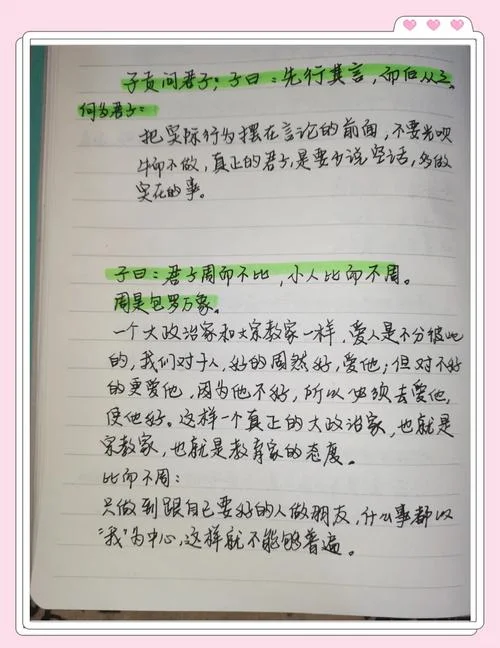 子贡问君子;子曰:先行其言,而后从之。
何为君子:
把实际行为摆在言论的前面,不要光吹
牛而不做,真正的君子,是要少说空话,多做
实在的事。
子曰:君子周而不比,小人比而不周。
周是包罗万象。
一个大政治家和大宗教家一样,爱人是不分彼此
的,我们对于人,好的周然好,爱他;但对不好
的更爱他,因为他不好,所以必须去爱他,
使他好。这样一个真正的大政治家,也就是
宗教家,也就是教育家的态度。
比而不周:
只做到跟自己要好的人做朋友,什么事都以
“我”为中心,这样就不能够普遍。